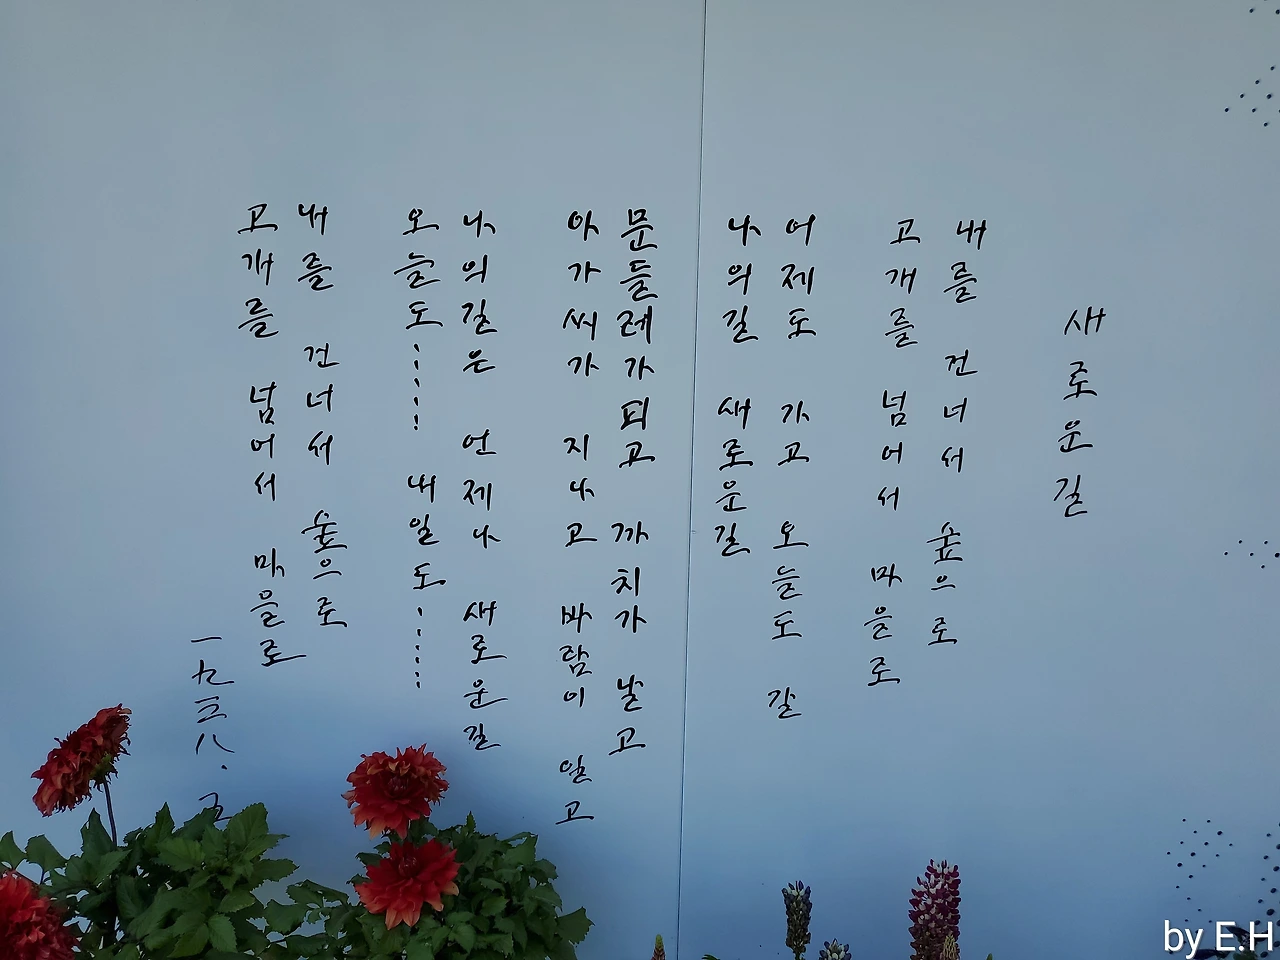 새로운길
내를 건너서 숲으로
고개를 넘어서 마을로
어제도 가고 오늘도 갈
나의길 새로운길
문들레가피고 까치가 날고
아가씨가 지나고 바람이 일고
나의길은 언제나 새로운길
오늘도…… 내일도……
내를 건너서 숲으로
고개를 넘어서 마을로
一九三八.五
by E.H